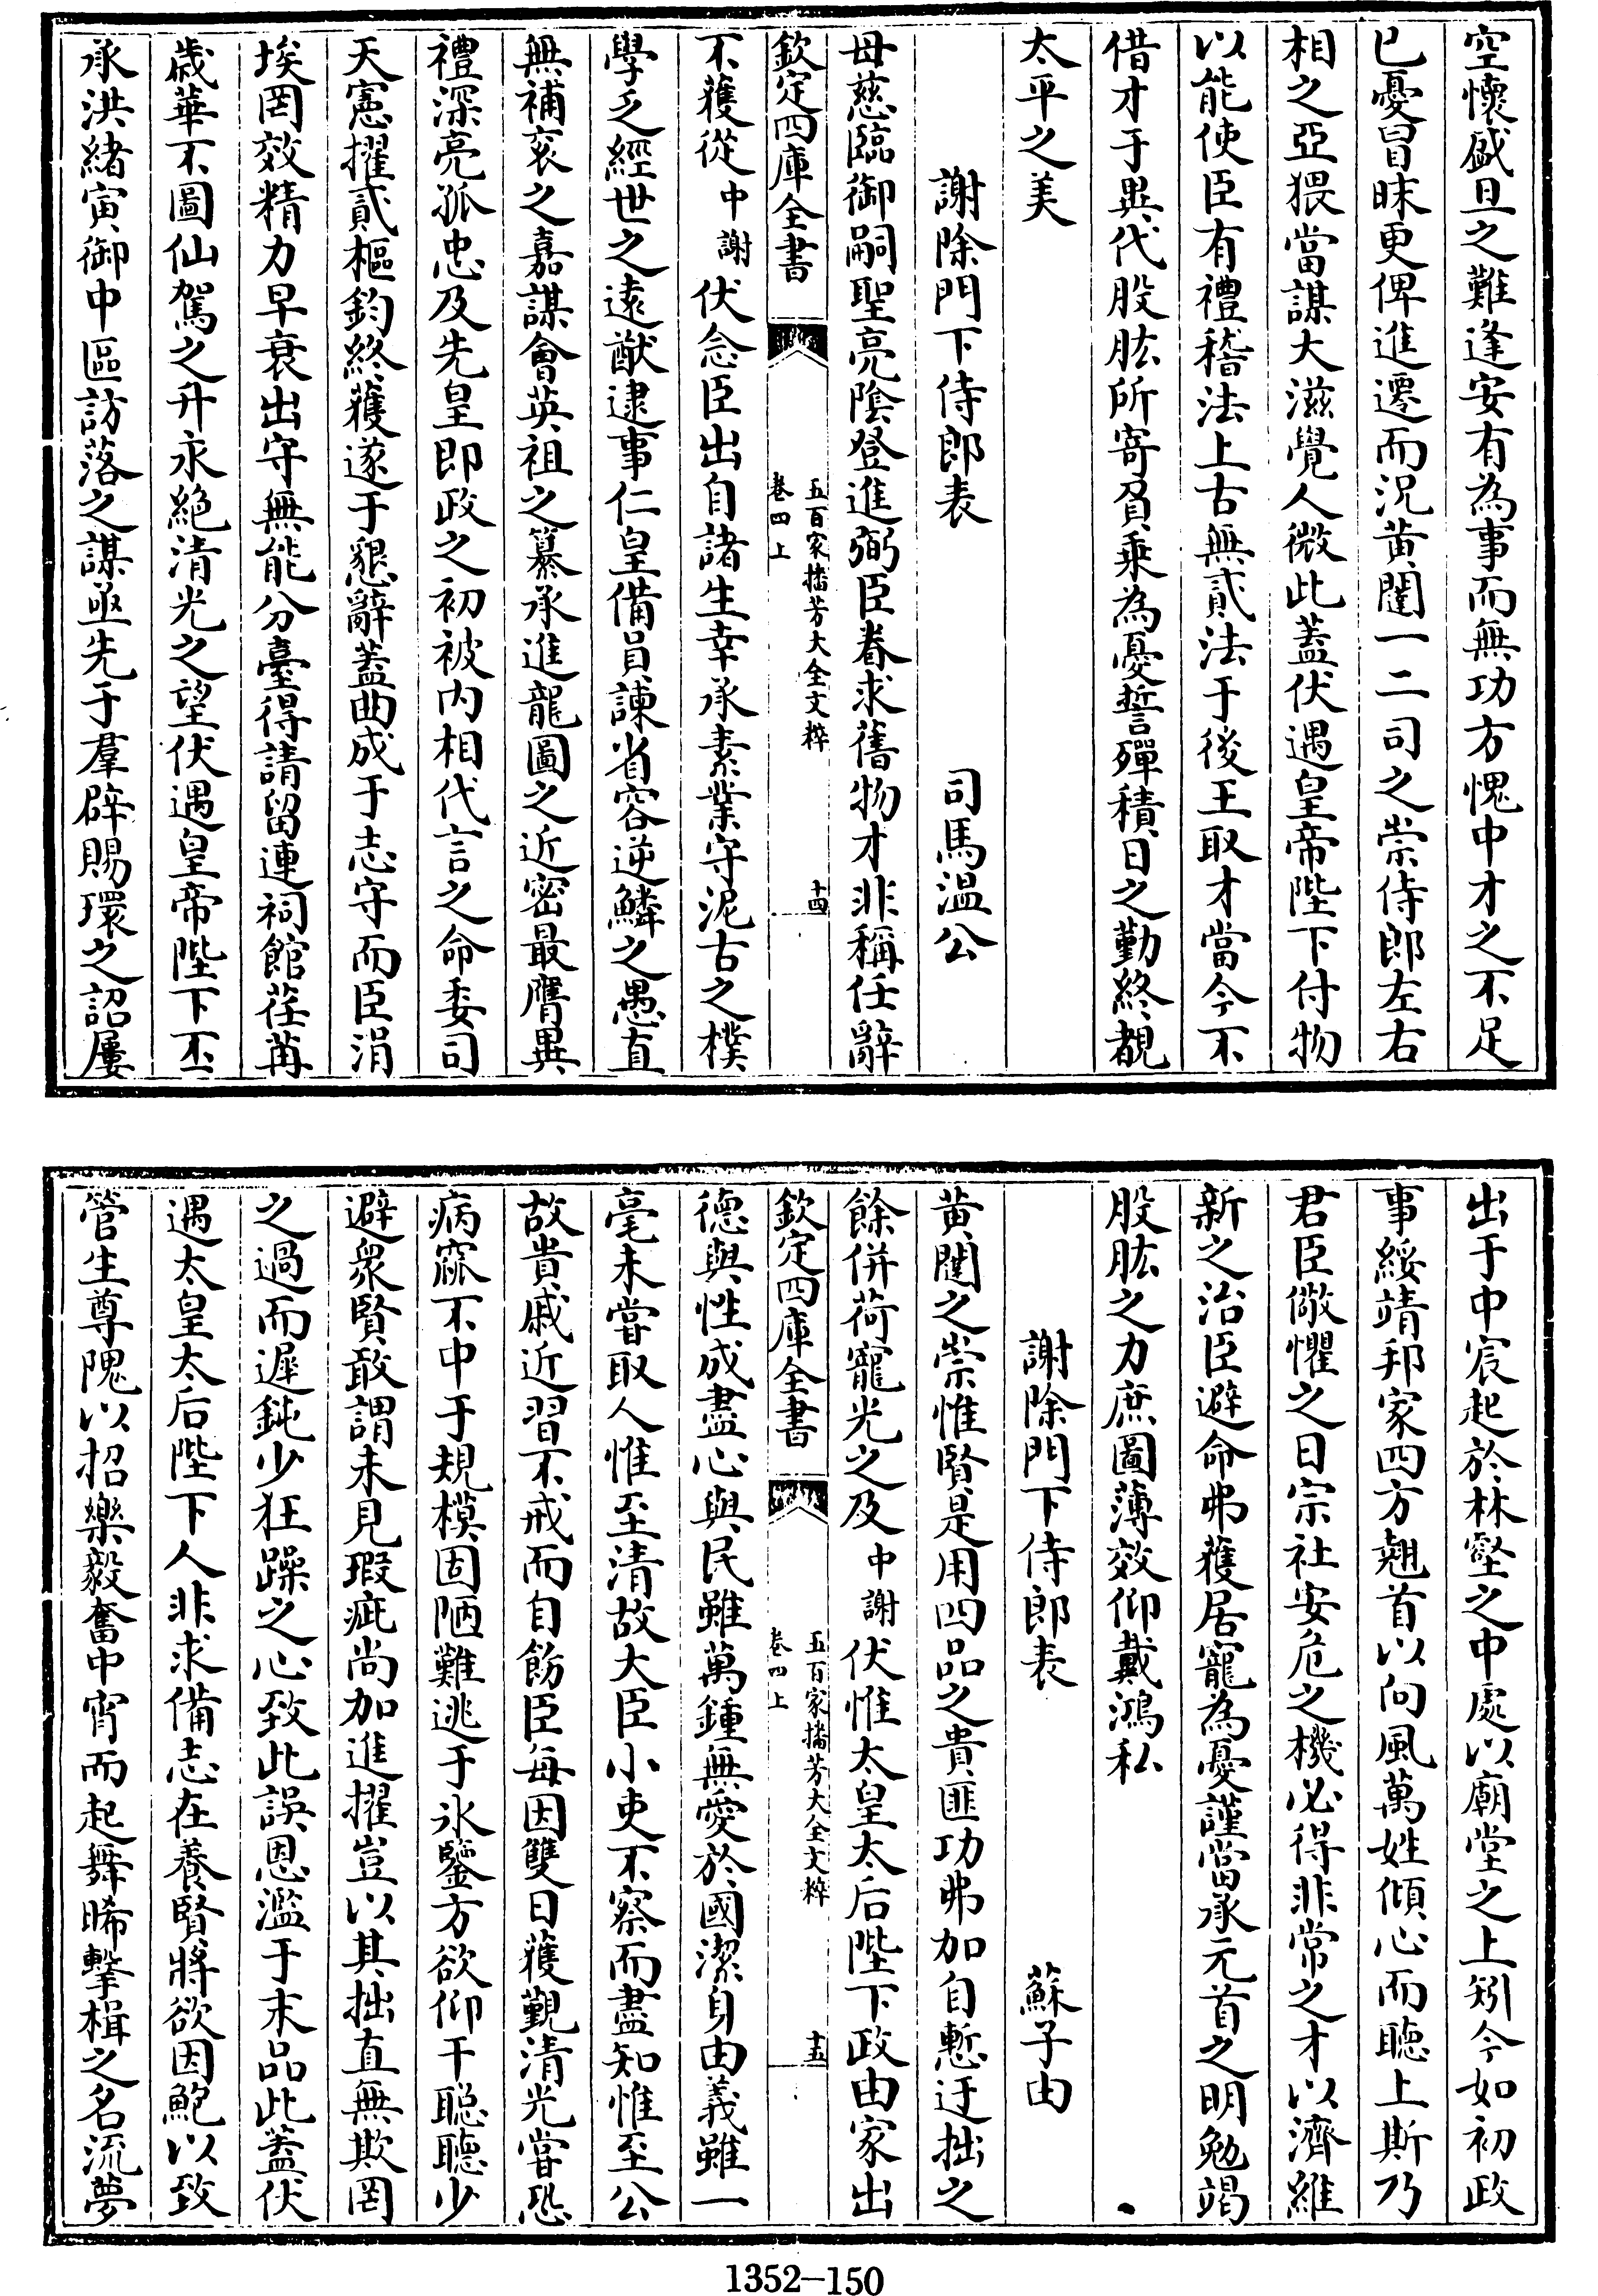 空懷盛旦之難逢安有為事而無功方愧中才之不足
已憂冒昧更俾進遷而況黄闥一二司之崇侍郎左右
相之亞猥當謀大滋覺人微此蓋伏遇皇帝陛下付物
以能使臣有禮稽法上古無貳法于後王取才當今不
借才于異代股肱所寄負乘為憂誓殫積日之勤終覩
太平之美
謝除門下侍郎表 司馬温公
母慈臨御嗣聖亮隂登進弼臣眷求舊物才非稱任辭
欽定四庫全書 五百家播芳大全文粹 卷四上 十四
不獲從中謝伏念臣出自諸生幸承素業守泥古之樸
學乏經世之逺猷逮事仁皇備員諫省容逆鱗之愚直
無補衮之嘉謀會英祖之纂承進龍圖之近密最膺異
禮深亮孤忠及先皇即政之初被内相代言之命委司
天憲擢貳樞鈞終獲遂于懇辭蓋曲成于志守而臣涓
埃罔效精力早衰出守無能分臺得請留連祠館荏苒
歲華不圖仙駕之升永絶清光之望伏遇皇帝陛下丕
承洪緒寅御中區訪落之謀亟先于羣辟賜環之詔屢
出于中宸起於林壑之中處以廟堂之上矧今如初政
事綏靖邦家四方翹首以向風萬姓傾心而聽上斯乃
君臣儆懼之日宗社安危之機必得非常之才以濟維
新之治臣避命弗獲居寵為憂謹當承元首之明勉竭
股肱之力庶圖薄效仰戴鴻私
謝除門下侍郎表 蘇子由
黄闥之崇惟賢是用四品之貴匪功弗加自慙迂拙之
餘併荷寵光之及中謝伏惟太皇太后陛下政由家出
欽定四庫全書 五百家播芳大全文粹 卷四上 十五
德與性成盡心與民雖萬鍾無愛於國潔身由義雖一
毫未嘗取人惟至清故大臣小吏不察而盡知惟至公
故貴戚近習不戒而自飭臣每因雙日獲覲清光嘗恐
病寙不中于規模固陋難逃于氷鑒方欲仰干聪聽少
避衆賢敢謂未見瑕疵尚加進擢豈以其拙直無欺罔
之過而遲鈍少狂躁之心致此誤恩濫于末品此蓋伏
遇太皇太后陛下人非求備志在養賢將欲因鮑以致
管生尊隗以招樂毅奮中宵而起舞晞擊楫之名流夢
1352—150